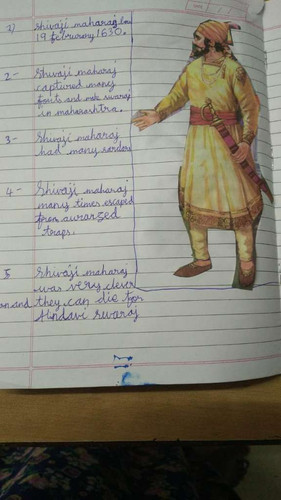 1) Shivaji maharaj
19 february 1630.
2- Shivaji maharaj
captured many
forts and make swaraj
in maharashtra.
3- Shivaji maharaj
had many sardars
4- Shivaji maharaj
many times escaped
from
traps.
5 Shivaji maharaj
was very clever
and they can die for
Hindavi swaraj